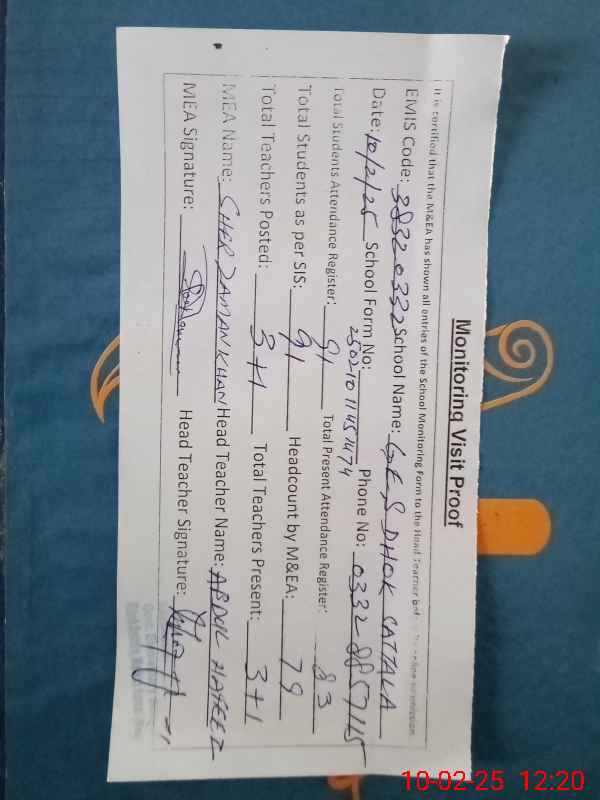 Monitoring Visit Proof
It is certified that the M&EA has shown all entries of the School Monitoring Form to the Head Teacher before online submission
EMIS Code: 38320332 School Name: GES DHOK SATTALA
Date: 10/2/25 School Form No: 25021011451474 Phone No: 0332 8857115
Total Students Attendance Register: 91 Total Present Attendance Register: 83
Total Students as per SIS: 91 Headcount by M&EA: 79
Total Teachers Posted: 3+1 Total Teachers Present: 3+1
MEA Name: SHER ZAMAN KHAN Head Teacher Name: ABDUL HAFEEZ
MEA Signature: Head Teacher Signature:
10-02-25 12:20